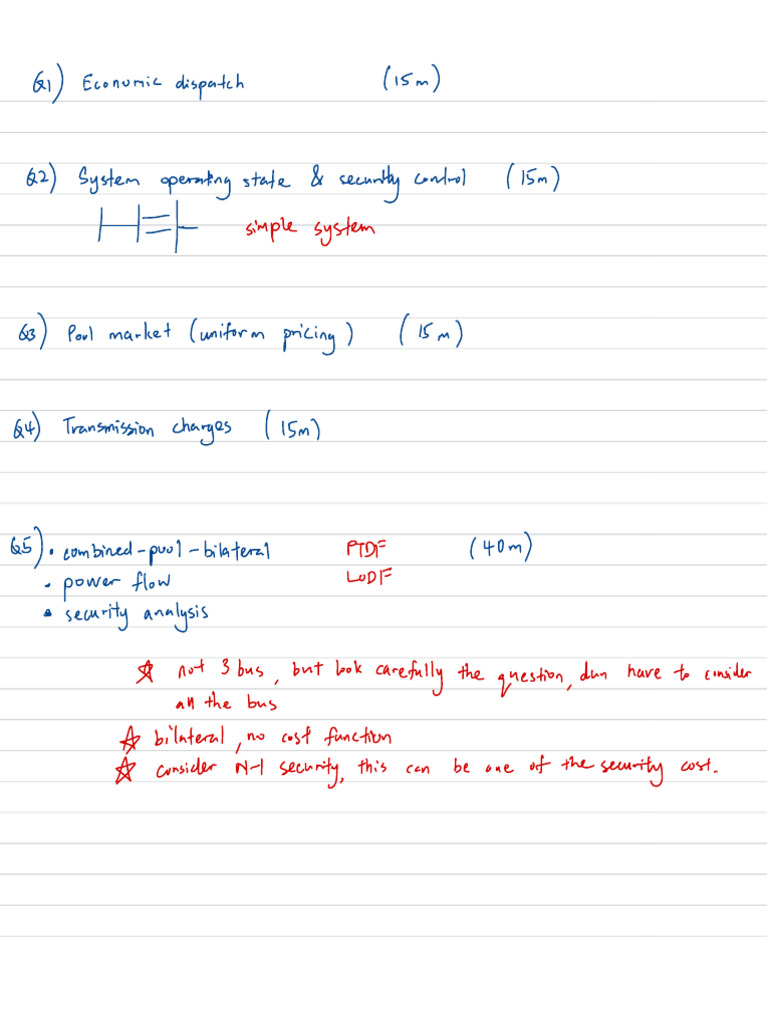 Q1) Economic dispatch (15m)
Q2) System operating state & security control (15m)
simple system
Q3) Pool market (uniform pricing) (15m)
Q4) Transmission charges (15m)
Q5) • combined-pool-bilateral PTDF (40m)
• power flow LODF
• security analysis
☆ not 3 bus, but look carefully the question, dun have to consider
all the bus
☆ bilateral, no cost function
☆ consider N-1 security, this can be one of the security cost.